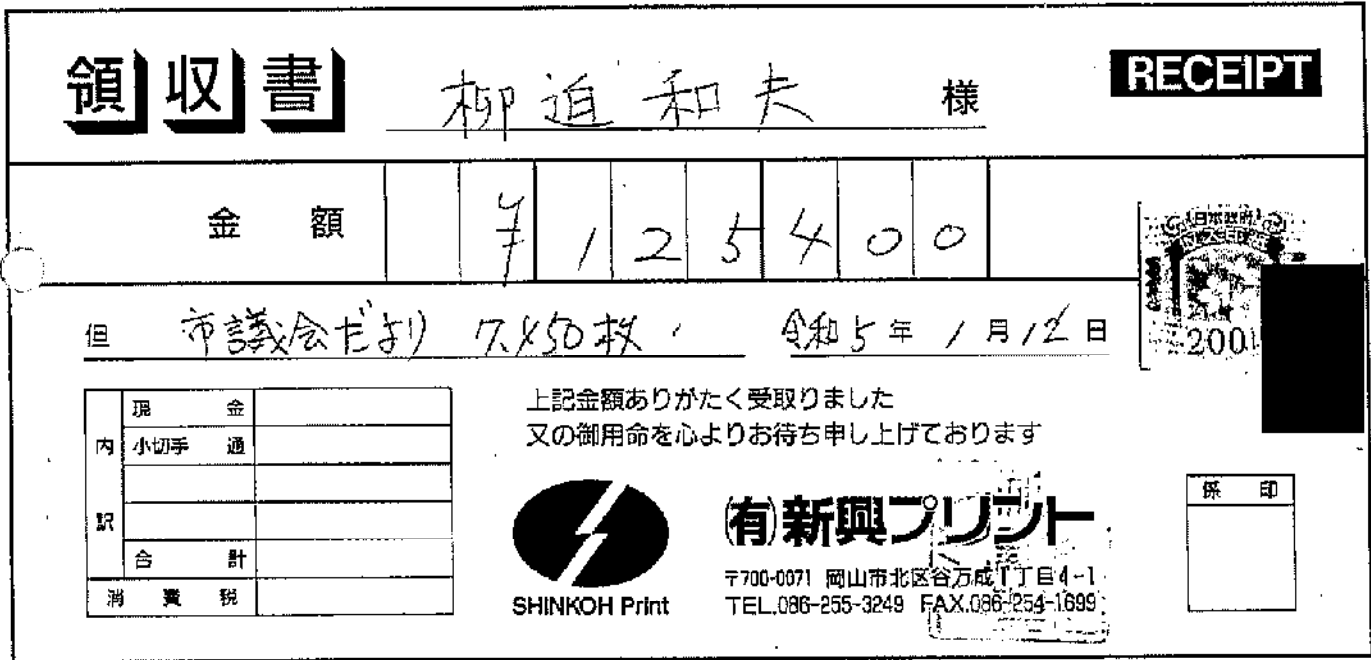 領収書 柳迫和夫 様 RECEIPT
金額 ¥125400
但 市議会だより 7,450枚 令和5年1月12日
日本政府
200
上記金額ありがたく受取りました
又の御用命を心よりお待ち申し上げております
内訳
現金
小切手 通
合計
消費税
SHINKOH Print
(有)新興プリント
〒700-0071 岡山市北区谷万成1丁目4-1
TEL.086-255-3249 FAX.086-254-1699
係印